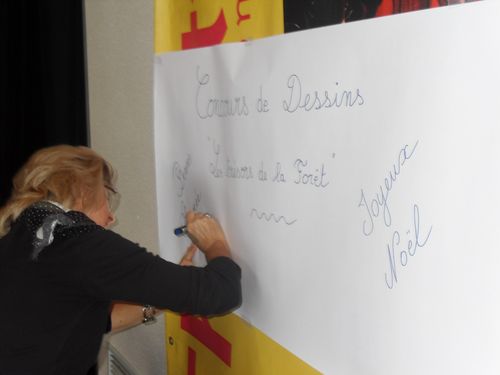 Concours de Dessins
"Les trésors de la Forêt"
Joyeux
Noël